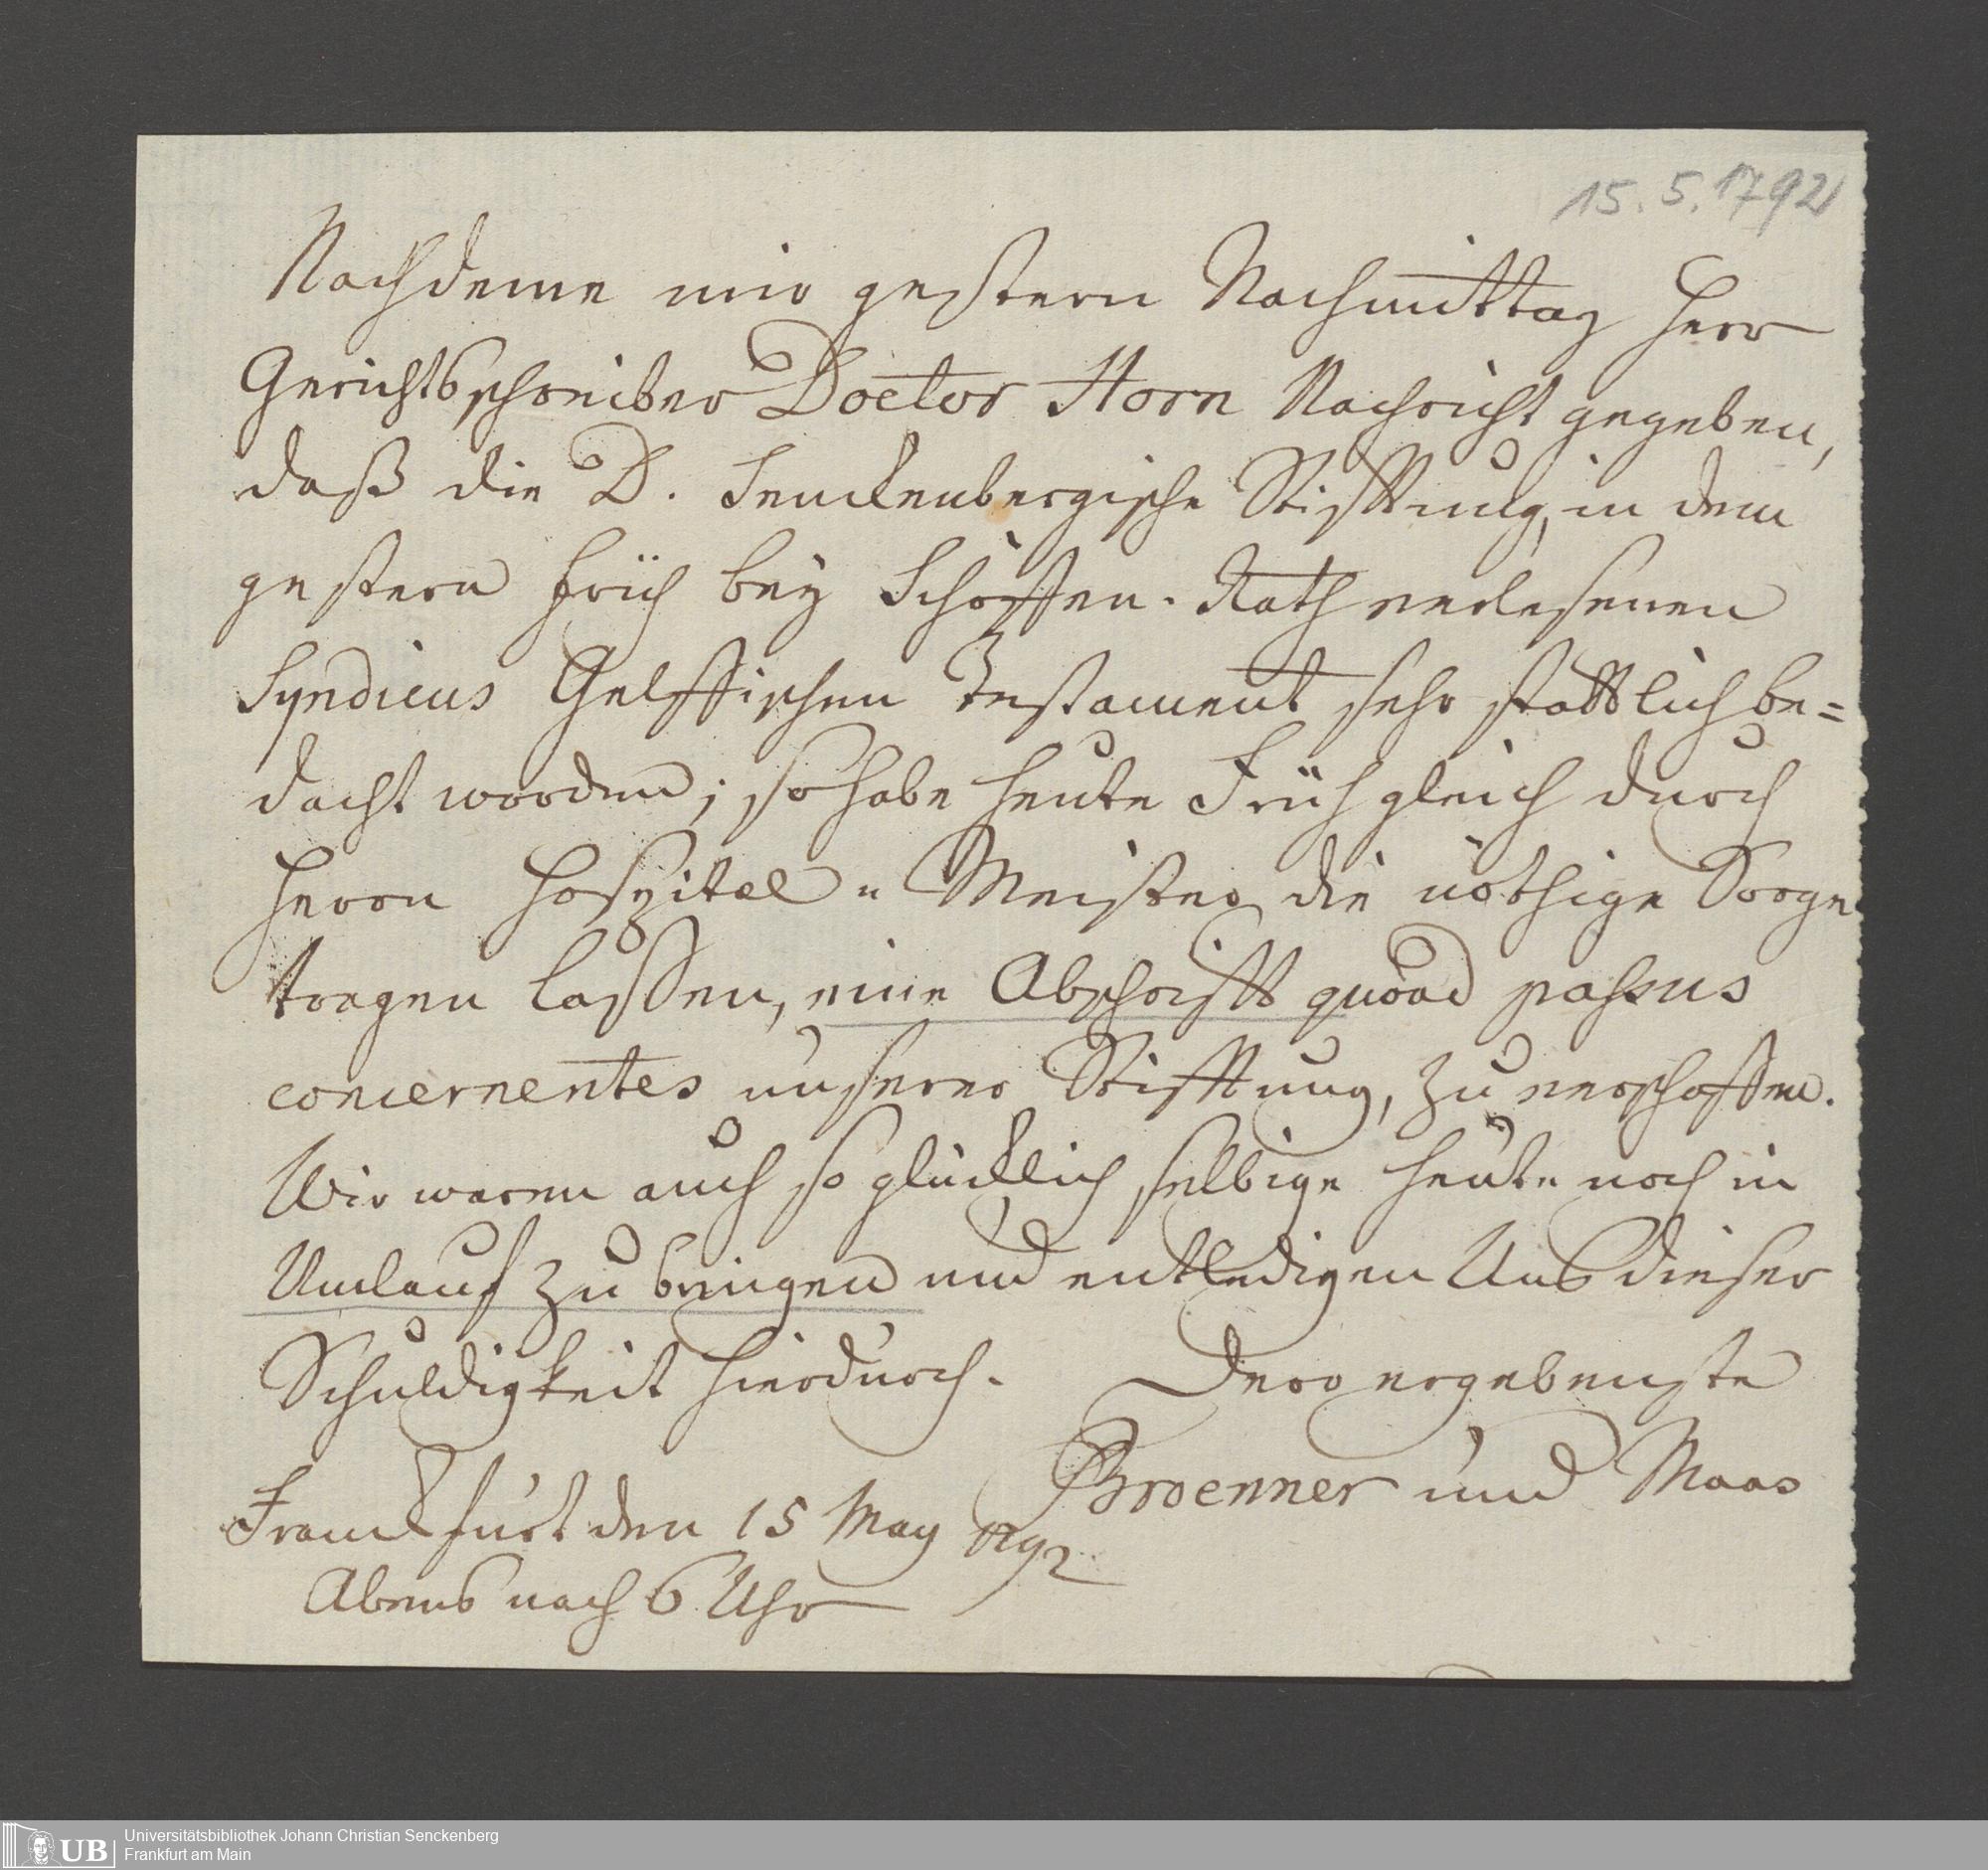 15. 5. 1792
Nachdeme mir gestern Nachmittag Herr
Gerichtsschreiber Doctor Horn Nachricht gegeben,
daß die D. Senckenbergische Stifftung, in dem
gestern früh bey Schöffen-Rath verlesenen
Syndicus Gelffischen Testament sehr stattlich be=
dacht worden; so habe heute Früh gleich durch
Herrn Hospital-Meister die nöthige Sorge
tragen lassen, eine Abschrifft quoad passus
concernentes unserer Stifftung, zu verschaffen.
Wir waren auch so glücklich selbige heute noch in
Umlauf zu bringen und entledigen Uns dieser
Schuldigkeit hierdurch.
Dero ergebenste
Broenner und Maas
Franckfurt den 15 May 1792
Abens nach 6 Uhr
UB
Universitätsbibliothek Johann Christian Senckenberg
Frankfurt am Main